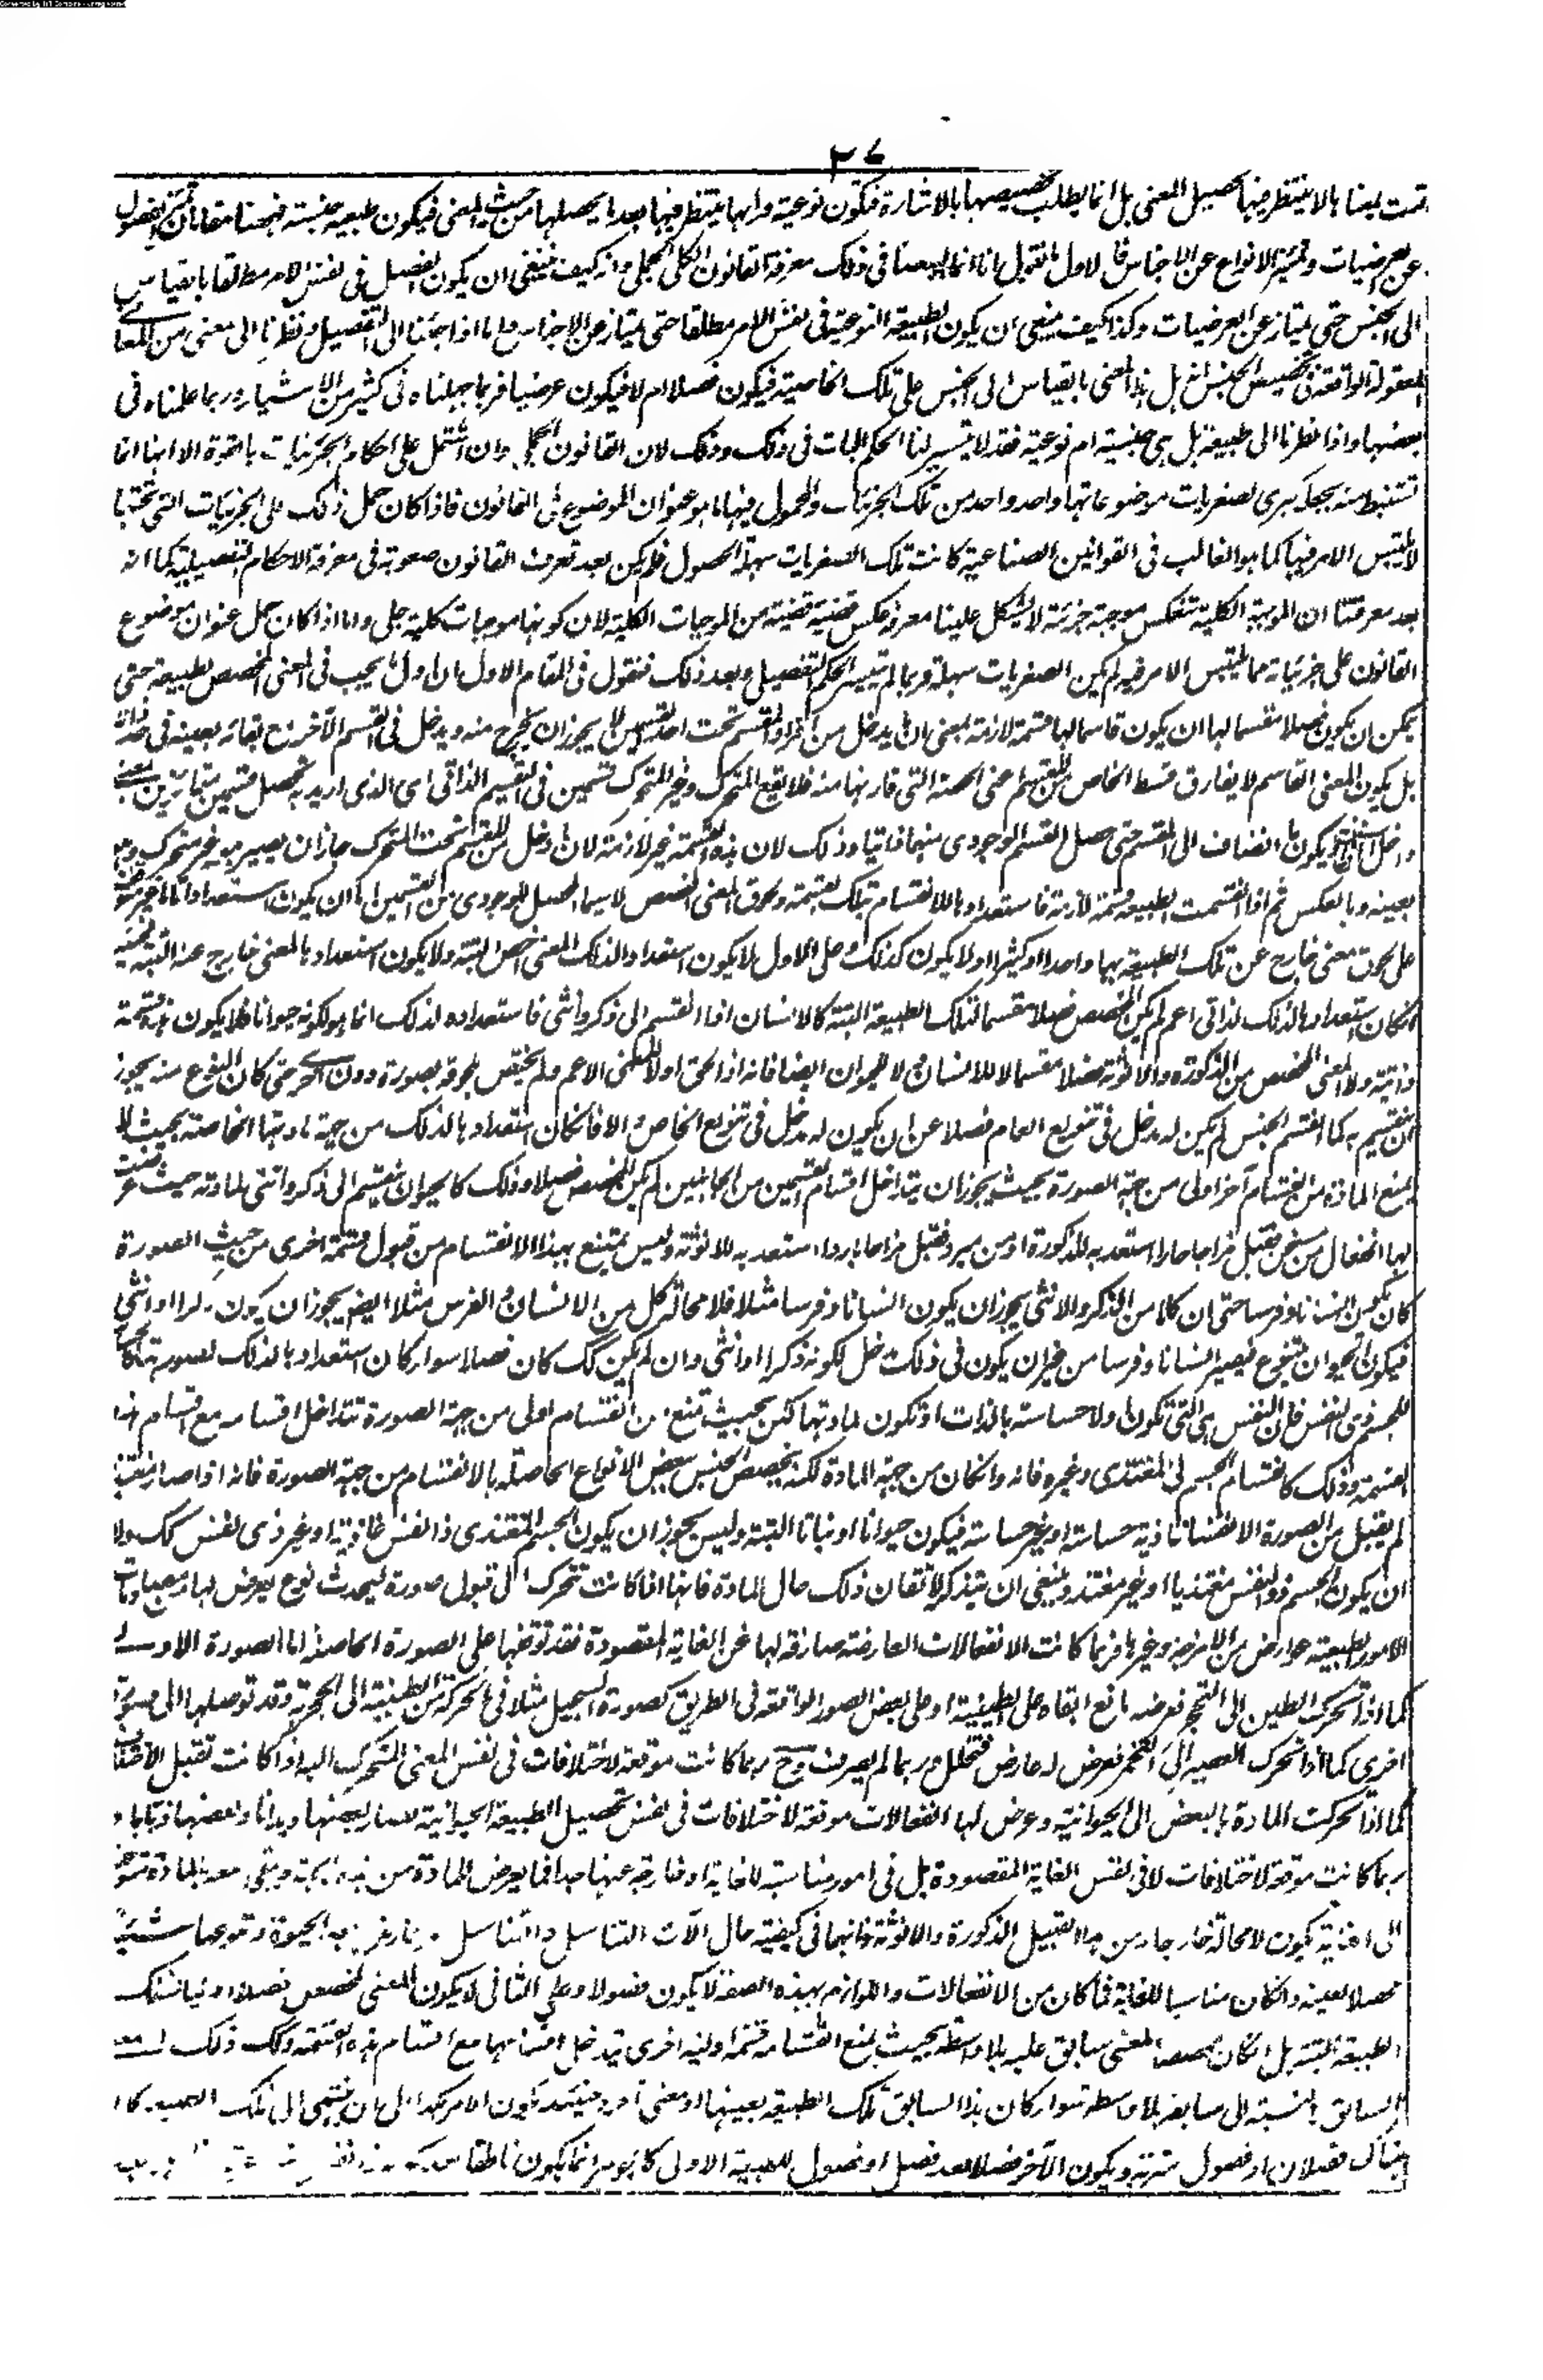 ٣٧
بالا ينتظر فيها تحصيل المعنى بل انما يطلب تخصيصها بالاشارة فتكون نوعية وانها ينتظر فيها بعد ما يحصلها من حيث المعنى فيكون طبيعة جنسية فههنا مقامان تميز الفصول
عن العرضيات وتميز الانواع عن الاجناس فالاول نقول انا انما يسعنا فى ذلك معرفة القانون الكلى الجملى وانه كيف ينبغى ان يكون الفصل فى نفس الامر مطلقا بالقياس
الى الجنس حتى يمتاز عن العرضيات وكذا كيف ينبغى ان يكون الطبيعة النوعية فى نفس الامر مطلقا حتى يمتاز عن الاجناس واما اذا جئنا الى التفصيل ونظرنا الى معنى من المعانى
المعقولة الواقعة فى تخصيص الجنس انه هل هذا المعنى بالقياس الى الجنس على تلك الخاصية فيكون فصلا ام لا فيكون عرضيا فربما جهلناه فى كثير من الاشياء وربما علمناه فى
بعضها واذا نظرنا الى طبيعة هل هى جنسية ام نوعية فقد لا يتيسر لنا الحكم البات فى ذلك وذلك لان القانون الجملى وان اشتمل على احكام الجزئيات بالقوة الا انها انما
تستنبط منه بجعله كبرى لصغريات موضوعاتها واحد واحد من تلك الجزئيات والمحمول فيها ما هو عنوان الموضوع فى القانون فاذا كان حمل ذلك على الجزئيات التى تحتها
لا يلتبس الامر فيها كما هو الغالب فى القوانين الصناعية كانت تلك الصغريات سهلة الحصول فلم يكن بعد تعرف القانون صعوبة فى معرفة الاحكام التفصيلية كما انه
بعد معرفتنا ان الموجبة الكلية تنعكس موجبة جزئية لا يشكل علينا معرفة عكس قضية قضية من الموجبات الكلية لان كونها موجبات كلية جلى واما اذا كان حمل عنوان موضوع
القانون على جزئياته مما يلتبس الامر فيه لم يكن الصغريات سهلة وربما لم يتيسر الحكم التفصيلى وبعد ذلك فنقول فى المقام الاول ان اول ما يجب فى المعنى المخصص لطبيعة حتى
يمكن ان يكون فصلا مقسما لها ان يكون قاسما لها قسمة لازمة بمعنى ان ما يدخل من افراد المقسم تحت احد القسمين لا يجوز ان يخرج منه ويدخل فى القسم الآخر مع بقائه بعينه فى ذاته
بل يكون المعنى القاسم لا يفارق قسط الخاص من المقسم اعنى الحصة التى قارنها منه فلا يقع المتحرك وغير المتحرك قسمين فى التقسيم الذاتى اى الذى اريد به تحصل قسمين متمايزين
يكون ما انضاف الى المقسم حتى حصل القسم الوجودى منهما ذاتيا وذلك لان هذه القسمة غير لازمة لان ما دخل من المقسم تحت المتحرك جاز ان يصير هو غير متحرك وهو
بعينه وبالعكس ثم اذا انقسمت الطبيعة قسمة لازمة فاستعدادها للانقسام بتلك القسمة ولحوق المعنى المخصص لاسيما المحصل للوجودى من القسمين اما ان يكون استعدادا
على لحوق معنى خارج عن تلك الطبيعة بها واحدا او كثيرا او لا يكون كذلك وعلى الاول لا يكون استعدادا لذلك المعنى اخص البتة ولا يكون استعدادها لمعنى خارج عنه البتة
فان كان استعدادها لذلك لذاتى اعم لم يكن المخصص فصلا مقسما لتلك الطبيعة البتة كالانسان اذا انقسم الى ذكر وانثى فاستعداده لذلك انما هو لكونه حيوانا فلا يكون هذه القسمة
ذاتية ولا المعنى المخصص من الذكورة والانوثة فصلا مقسما لا للانسان ولا للحيوان ايضا فانه اذا لحق اولا للمعنى الاعم ولم يختص لحوقه بصورة دون اخرى حتى كان النوع منه يجوز
ان ينقسم به كما انقسم الجنس لم يكن له مدخل فى تنويع العام فضلا عن ان يكون له مدخل فى تنويع الخاص والا فان كان استعدادها لذلك من جهة مادتها الخاصة بحيث لا
يمنع المادة من انقسام آخر اولى من جهة الصورة بحيث يجوز ان يتداخل اقسام القسمين من الجانبين لم يكن المخصص فصلا وذلك كالحيوان ينقسم الى ذكر وانثى لمادته حيث عرضت
لها انفعال من مسخن فقبل مزاجا حارا استعد به للذكورة او من مبرد فقبل مزاجا باردا استعد به للانوثة وليس يمتنع بهذا الانقسام من قبول قسمة اخرى من حيث الصورة
كان يكون انسانا وفرسا حتى ان كلا من الذكر والانثى يجوز ان يكون انسانا وفرسا مثلا فلا محالة كل من الانسان والفرس مثلا ايضا يجوز ان يكون ذكرا او انثى
فيكون الحيوان يتنوع فيصير انسانا وفرسا من غير ان يكون فى ذلك دخل لكونه ذكرا او انثى وان لم يكن كك كان فصلا سواء كان استعدادها لذلك لصورتها
للجسم ذى النفس فان النفس هى التى تكون اولا حساسة بالذات او تكون لمادتها لكن بحيث تمنع من انقسام اولى من جهة الصورة تتداخل اقسامه مع اقسام هذه
القسمة وذلك كانقسام الجسم الى المغتذى وغيره فانه وان كان من جهة المادة لكنه يخصص الجنس ببعض الانواع الحاصلة بالانقسام من جهة الصورة فانه اذا صار مغتذيا
لم يقبل من الصورة الا نفسا غاذية حساسة او غير حساسة فيكون حيوانا او نباتا البتة وليس يجوز ان يكون الجسم المغتذى ذا نفس غاذية او غير ذى نفس كك ولا
ان يكون الجسم ذو النفس مغتذيا او غير مغتذ وينبغى ان يتذكر لاتقان ذلك حال المادة فانها اذا كانت تتحرك الى قبول صورة ليحدث نوع يعرض لها
الامور الطبيعية عوارض من الامزجة وغيرها فربما كانت الانفعالات العارضة صارفة لها عن الغاية المقصودة فقد توقفها على الصورة الحاصلة اما الصورة الاولى
كما اذا تحرك الطين الى التحجر فعرضه مانع ابقاه على الطينية او على بعض الصور الواقعة فى الطريق كصورة السجيل مثلا فى حركة من الطينية الى الحجرية وقد توصلها الى صورة
اخرى كما اذا تحرك العصير الى التخمر فعرض له عارض فتخلل وربما لم يصرف وح ربما كانت موقعة لاختلافات فى نفس المعنى المتحرك اليه اذا كانت تقبل الاختلاف
كما اذا تحركت المادة بالبعض الى الحيوانية وعرض لها انفعالات موقعة لاختلافات فى نفس تحصيل الطبيعة الحيوانية فصار بعضها ديدانا وبعضها ذبابا و
ربما كانت موقعة لاختلافات لا فى نفس الغاية المقصودة بل فى امور مناسبة للغاية او خارجة عنها جدا فما يعرض المادة من هذه الجهة ويبقى معه المادة متوجهة
الى الغاية يكون لا محالة خارجا ومن هذا القبيل الذكورة والانوثة فانهما فى كيفية حال آلات التناسل والتناسل به الحيوة وتنوعها
محصلا بعينه وان كان مناسبا للغاية فما كان من الانفعالات واللوازم بهذه الصفة لا يكون فصولا وعلى الثانى لا يكون المعنى المخصص فصلا اوليا لتلك
الطبيعة البتة بل ان كان مخصصا لمعنى سابق عليه بلا واسطة بحيث يمنع انقسامه قسمة اولية اخرى يتداخل اقسامها مع اقسام هذه القسمة وكك ذلك
السابق بالنسبة الى سابقه بلا واسطة سواء كان هذا السابق تلك الطبيعة بعينها او معنى آخر وحينئذ يكون الامر كذلك الى ان ينتهى الى تلك الطبيعة كان
هناك فصلان او فصول مترتبة ويكون الآخر فصلا بعد فصل او فصول للطبيعة الاولى كالجوهر انما يكون ناطقا